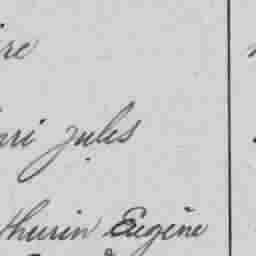 ire
ari jules
thurin Eugène